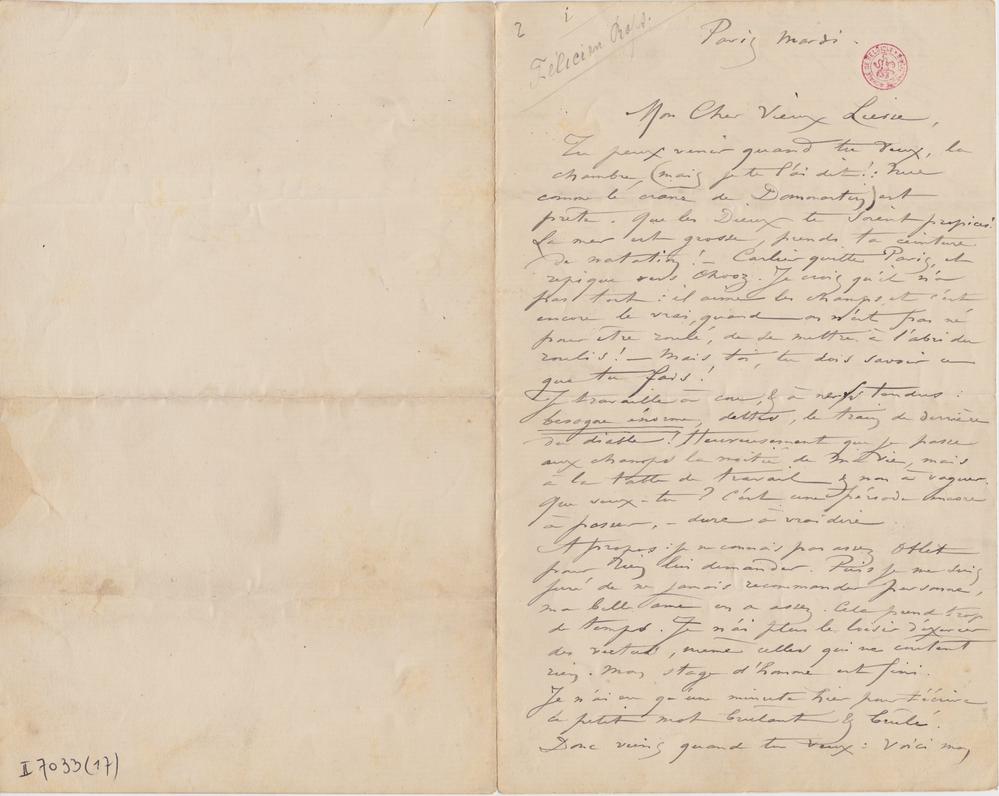 2
Félicien Rops.
Paris mardi.
Mon Cher Vieux Liesse,
Tu peux venir quand tu veux, la
chambre, (mais je te l'ai dit!: nue
comme le crane de Dommartin) est
prête. Que les Dieux te soient propices!
La mer est grosse, prends ta ceinture
de natation! — Carlier quitte Paris, et
repique vers Chooz. Je crois qu'il n'a
pas tort: il aime les champs et c'est
encore le vrai, quand on n'est pas né
pour être roulé, de se mettre à l'abri du
roulis! — Mais toi, tu dois savoir ce
que tu fais!
Je travaille à & à nerfs tendus:
besogne énorme, dettes, le train de derrière
du diable! Heureusement que je passe
aux champs la moitié de ma vie, mais
à la table de travail & non à vaguer.
Que veux-tu? C'est une période encore
à passer, - dure à vrai dire
A propos: je ne connais pas assez Oblet
pour rien lui demander. Puis je me suis
juré de ne jamais recommander personne,
ma belle ame en a assez. Cela prend trop
de temps. Je n'ai plus le loisir d'exercer
des vertus, même celles qui ne coutent
rien. Mon stage d'homme est fini.
Je n'ai eu qu'une minute hier pour t'écrire
ce petit mot brulant & brulé.
Donc viens quand tu veux: Voici mon
II 7033 (17)